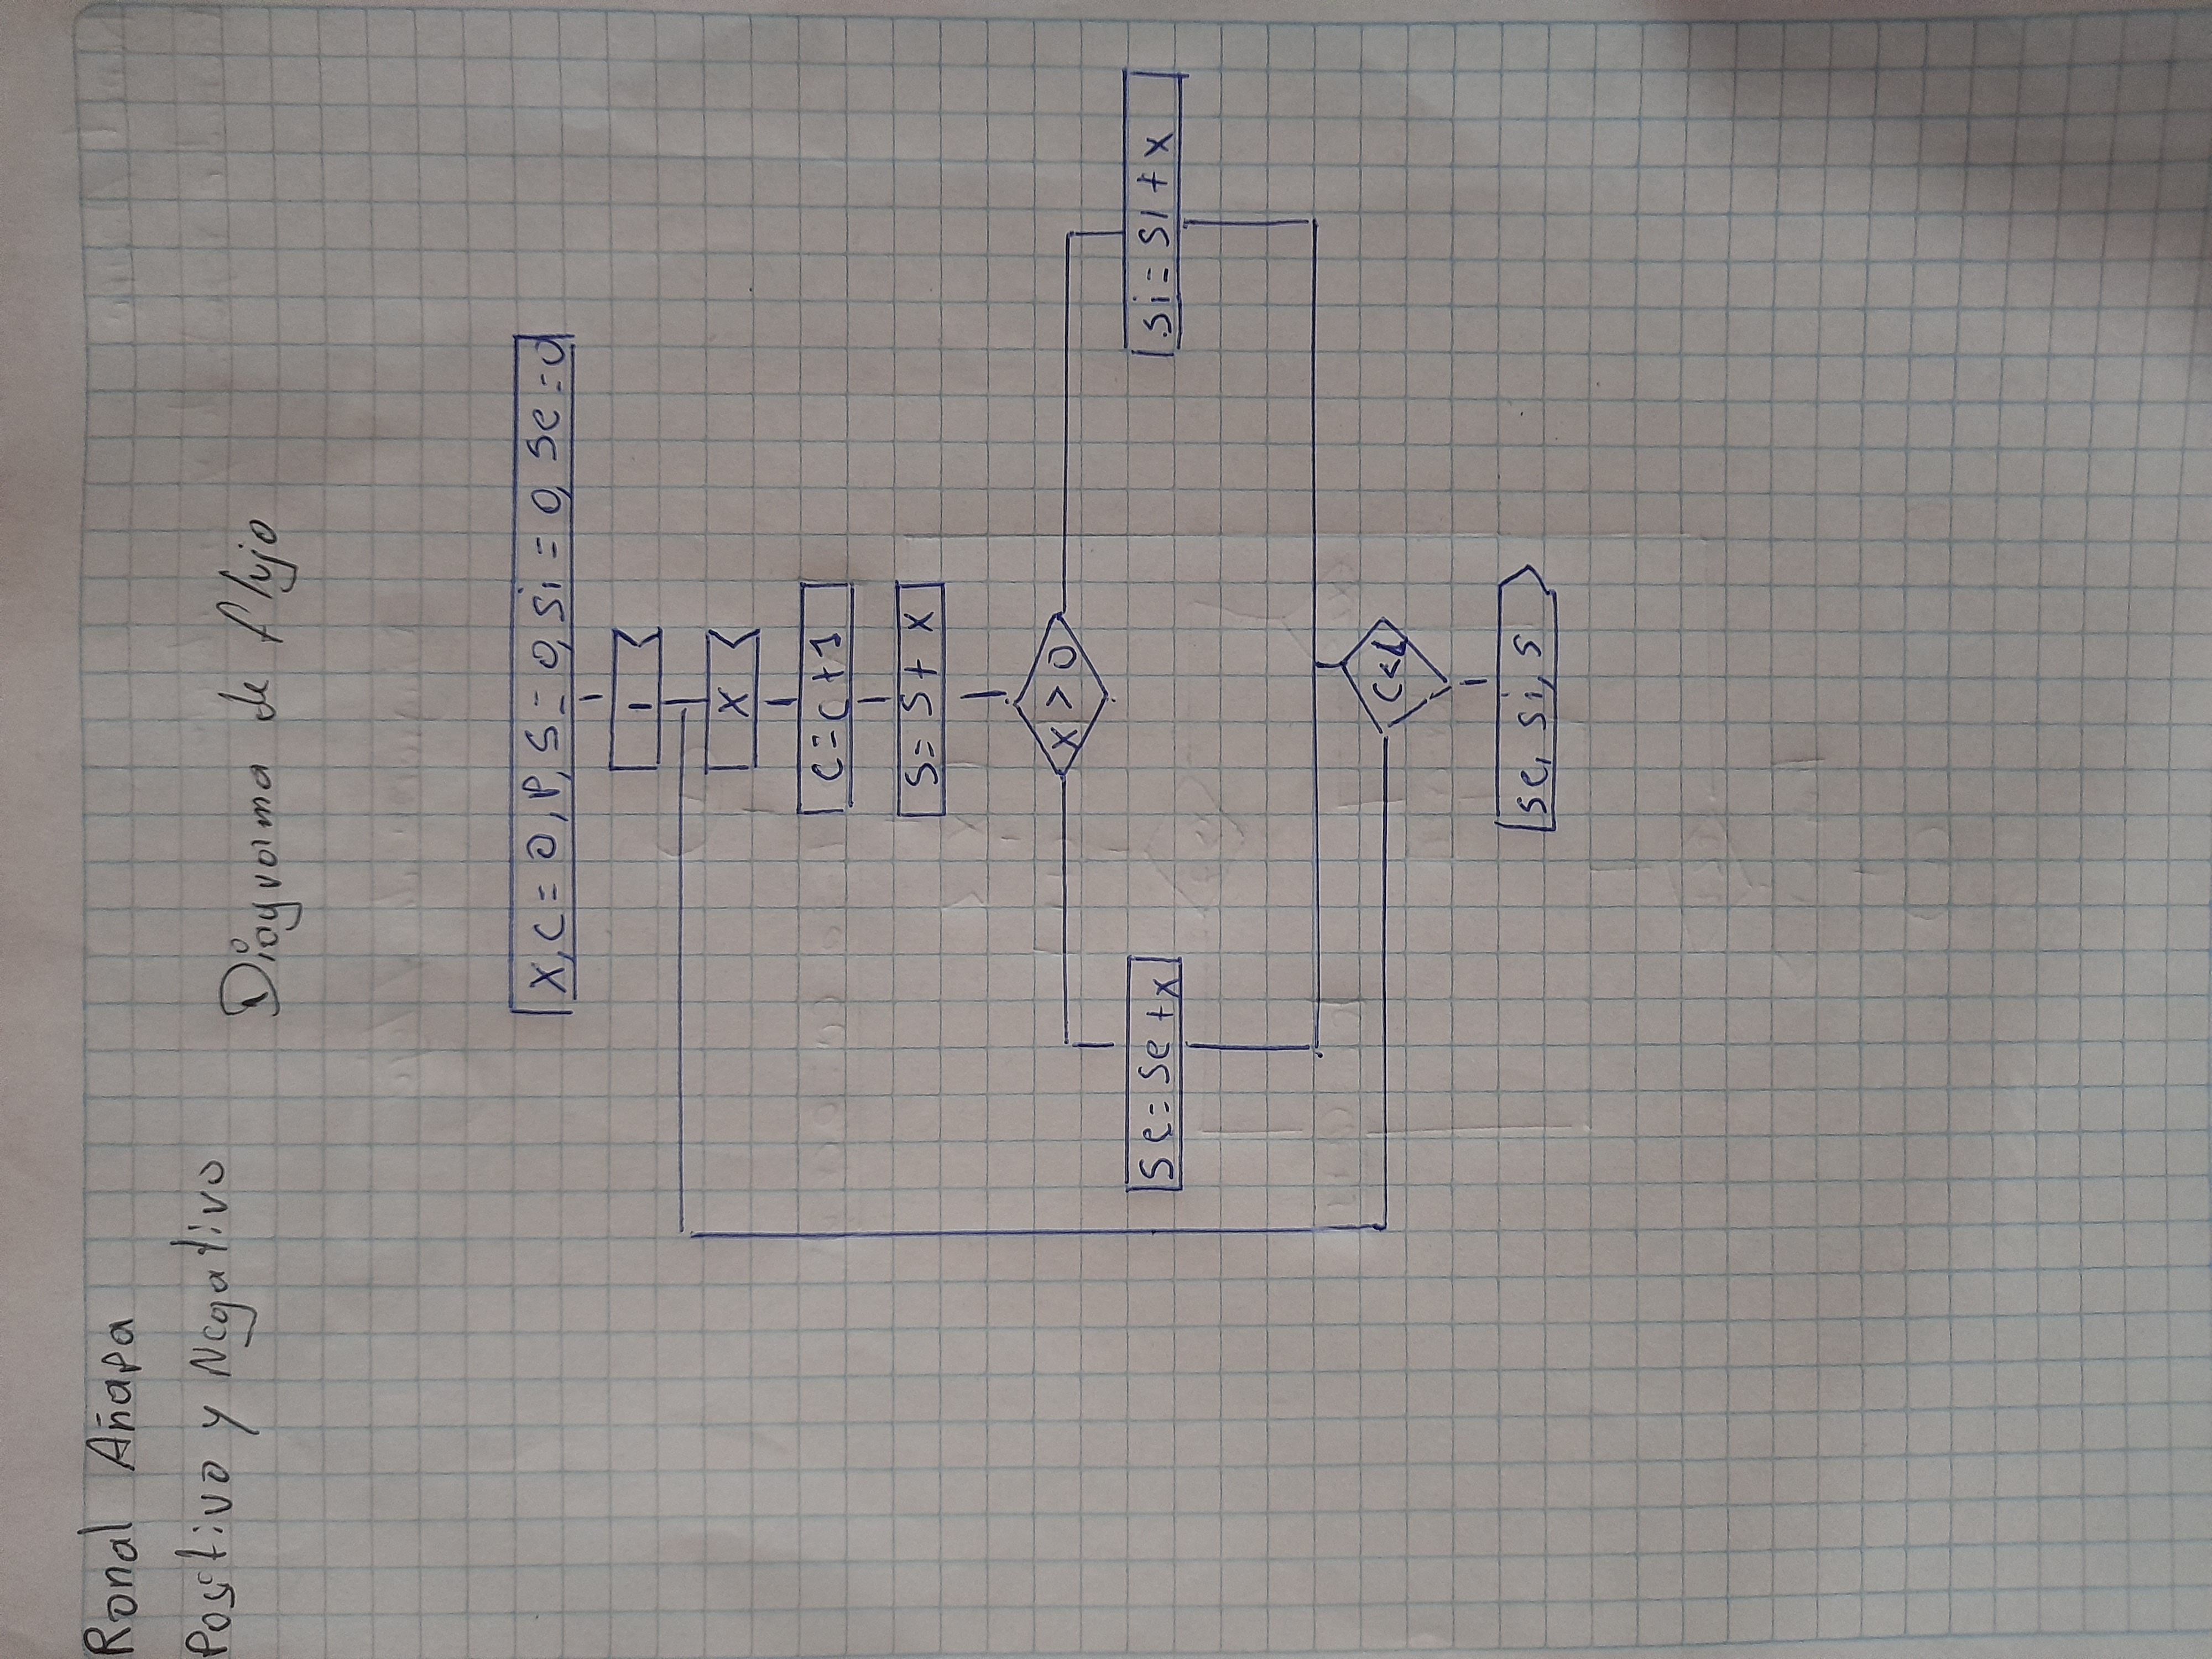 Ronal Añapa
Positivo y Negativo
Diagrama de flujo
X, C = 0, P, S = 0, Si = 0, Se = 0
I
X
C = C + 1
S = S + X
X > 0
Se = Se + x
Si = Si + x
Se, Si, S